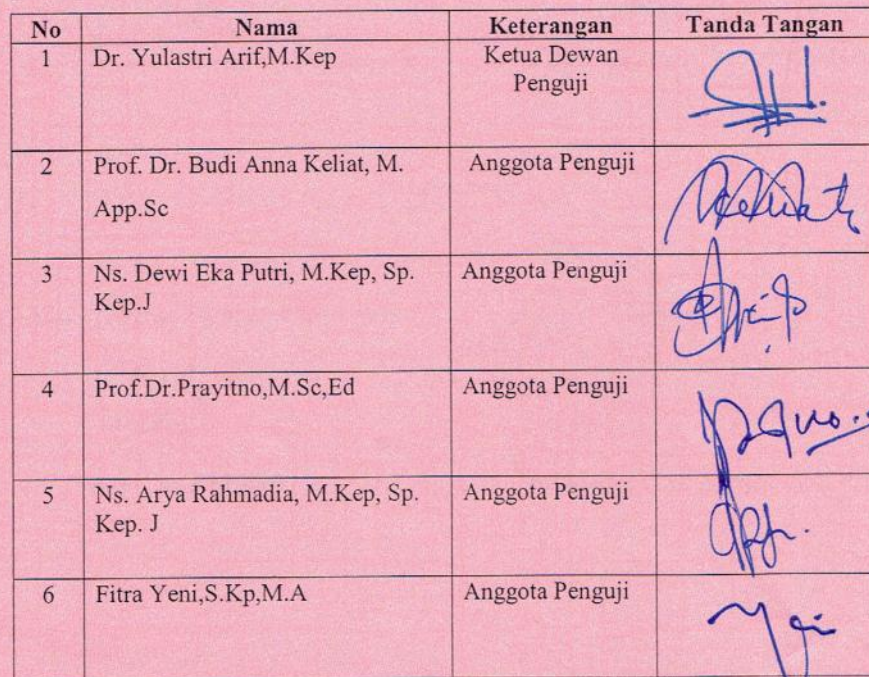 No Nama Keterangan Tanda Tangan
1 Dr. Yulastri Arif,M.Kep Ketua Dewan
Penguji
2 Prof. Dr. Budi Anna Keliat, M. Anggota Penguji
App.Sc
3 Ns. Dewi Eka Putri, M.Kep, Sp. Anggota Penguji
Kep.J
4 Prof.Dr.Prayitno,M.Sc,Ed Anggota Penguji
5 Ns. Arya Rahmadia, M.Kep, Sp. Anggota Penguji
Kep. J
6 Fitra Yeni,S.Kp,M.A Anggota Penguji